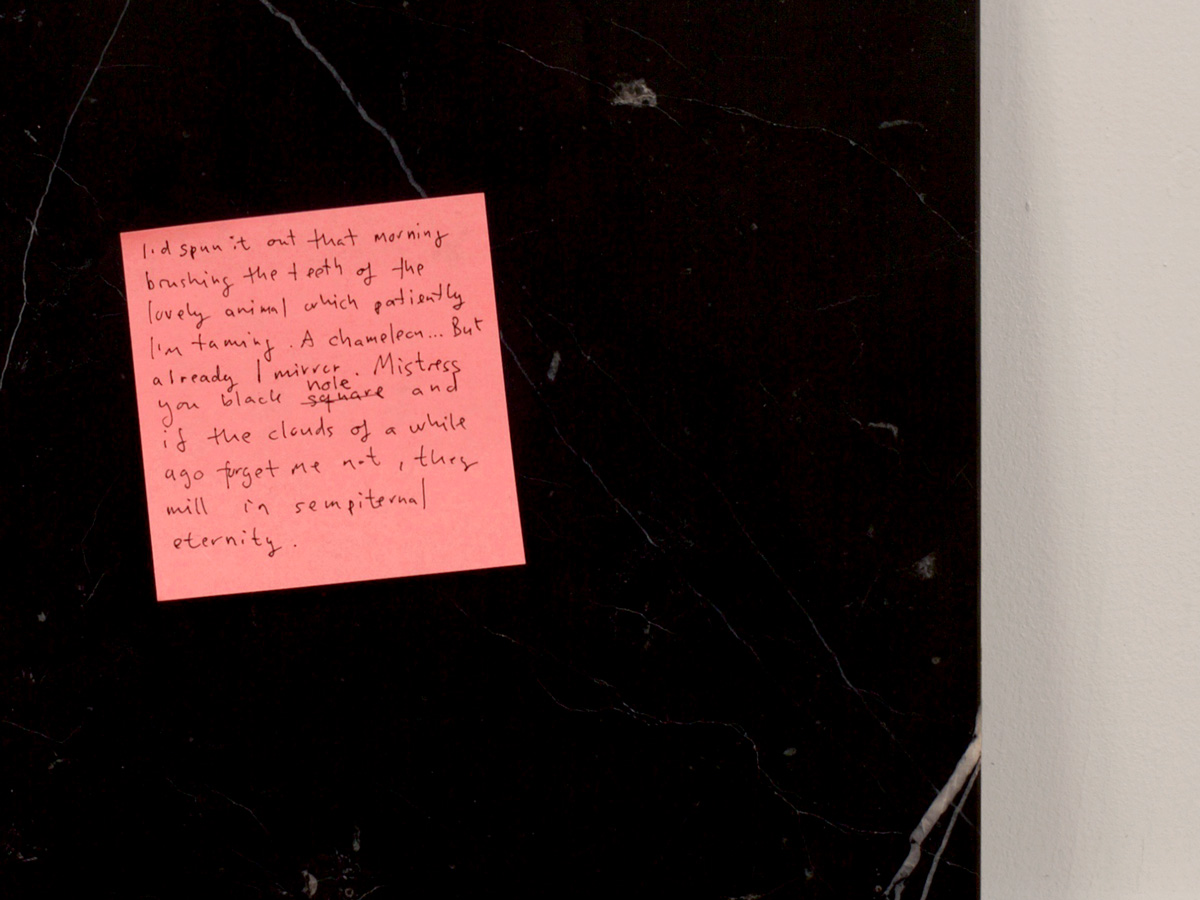 I'd spun it out that morning
brushing the teeth of the
lovely animal which patiently
I'm taming. A chameleon... But
already I mirror. Mistress
hole
you black square and
if the clouds of a while
ago forget me not, they
mill in sempiternal
eternity.